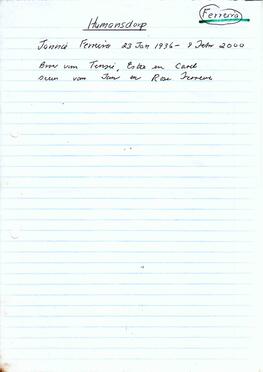 Ferreira
Humansdorp
Jannie Ferreira 23 Jan 1936 - 9 Febr 2000
Broer van Tensie, Estea en Carel
seun van Jan en Rose Ferreira